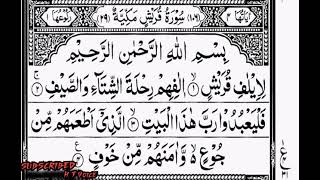 اٰيَاتُهَا ٤ (١٠٦) سُوْرَةُ قُرَيْشٍ مَكِّيَّةٌ (٢٩) رُكُوْعُهَا ١
بِسْمِ اللّٰهِ الرَّحْمٰنِ الرَّحِيْمِ
لِاِيْلٰفِ قُرَيْشٍ ۙ١ اٖلٰفِهِمْ رِحْلَةَ الشِّتَآءِ وَالصَّيْفِ ۚ٢
فَلْيَعْبُدُوْا رَبَّ هٰذَا الْبَيْتِ ۙ٣ الَّذِيْٓ اَطْعَمَهُمْ مِّنْ
جُوْعٍ ۙ وَّاٰمَنَهُمْ مِّنْ خَوْفٍ ۧ٤
SUBSCRIBED